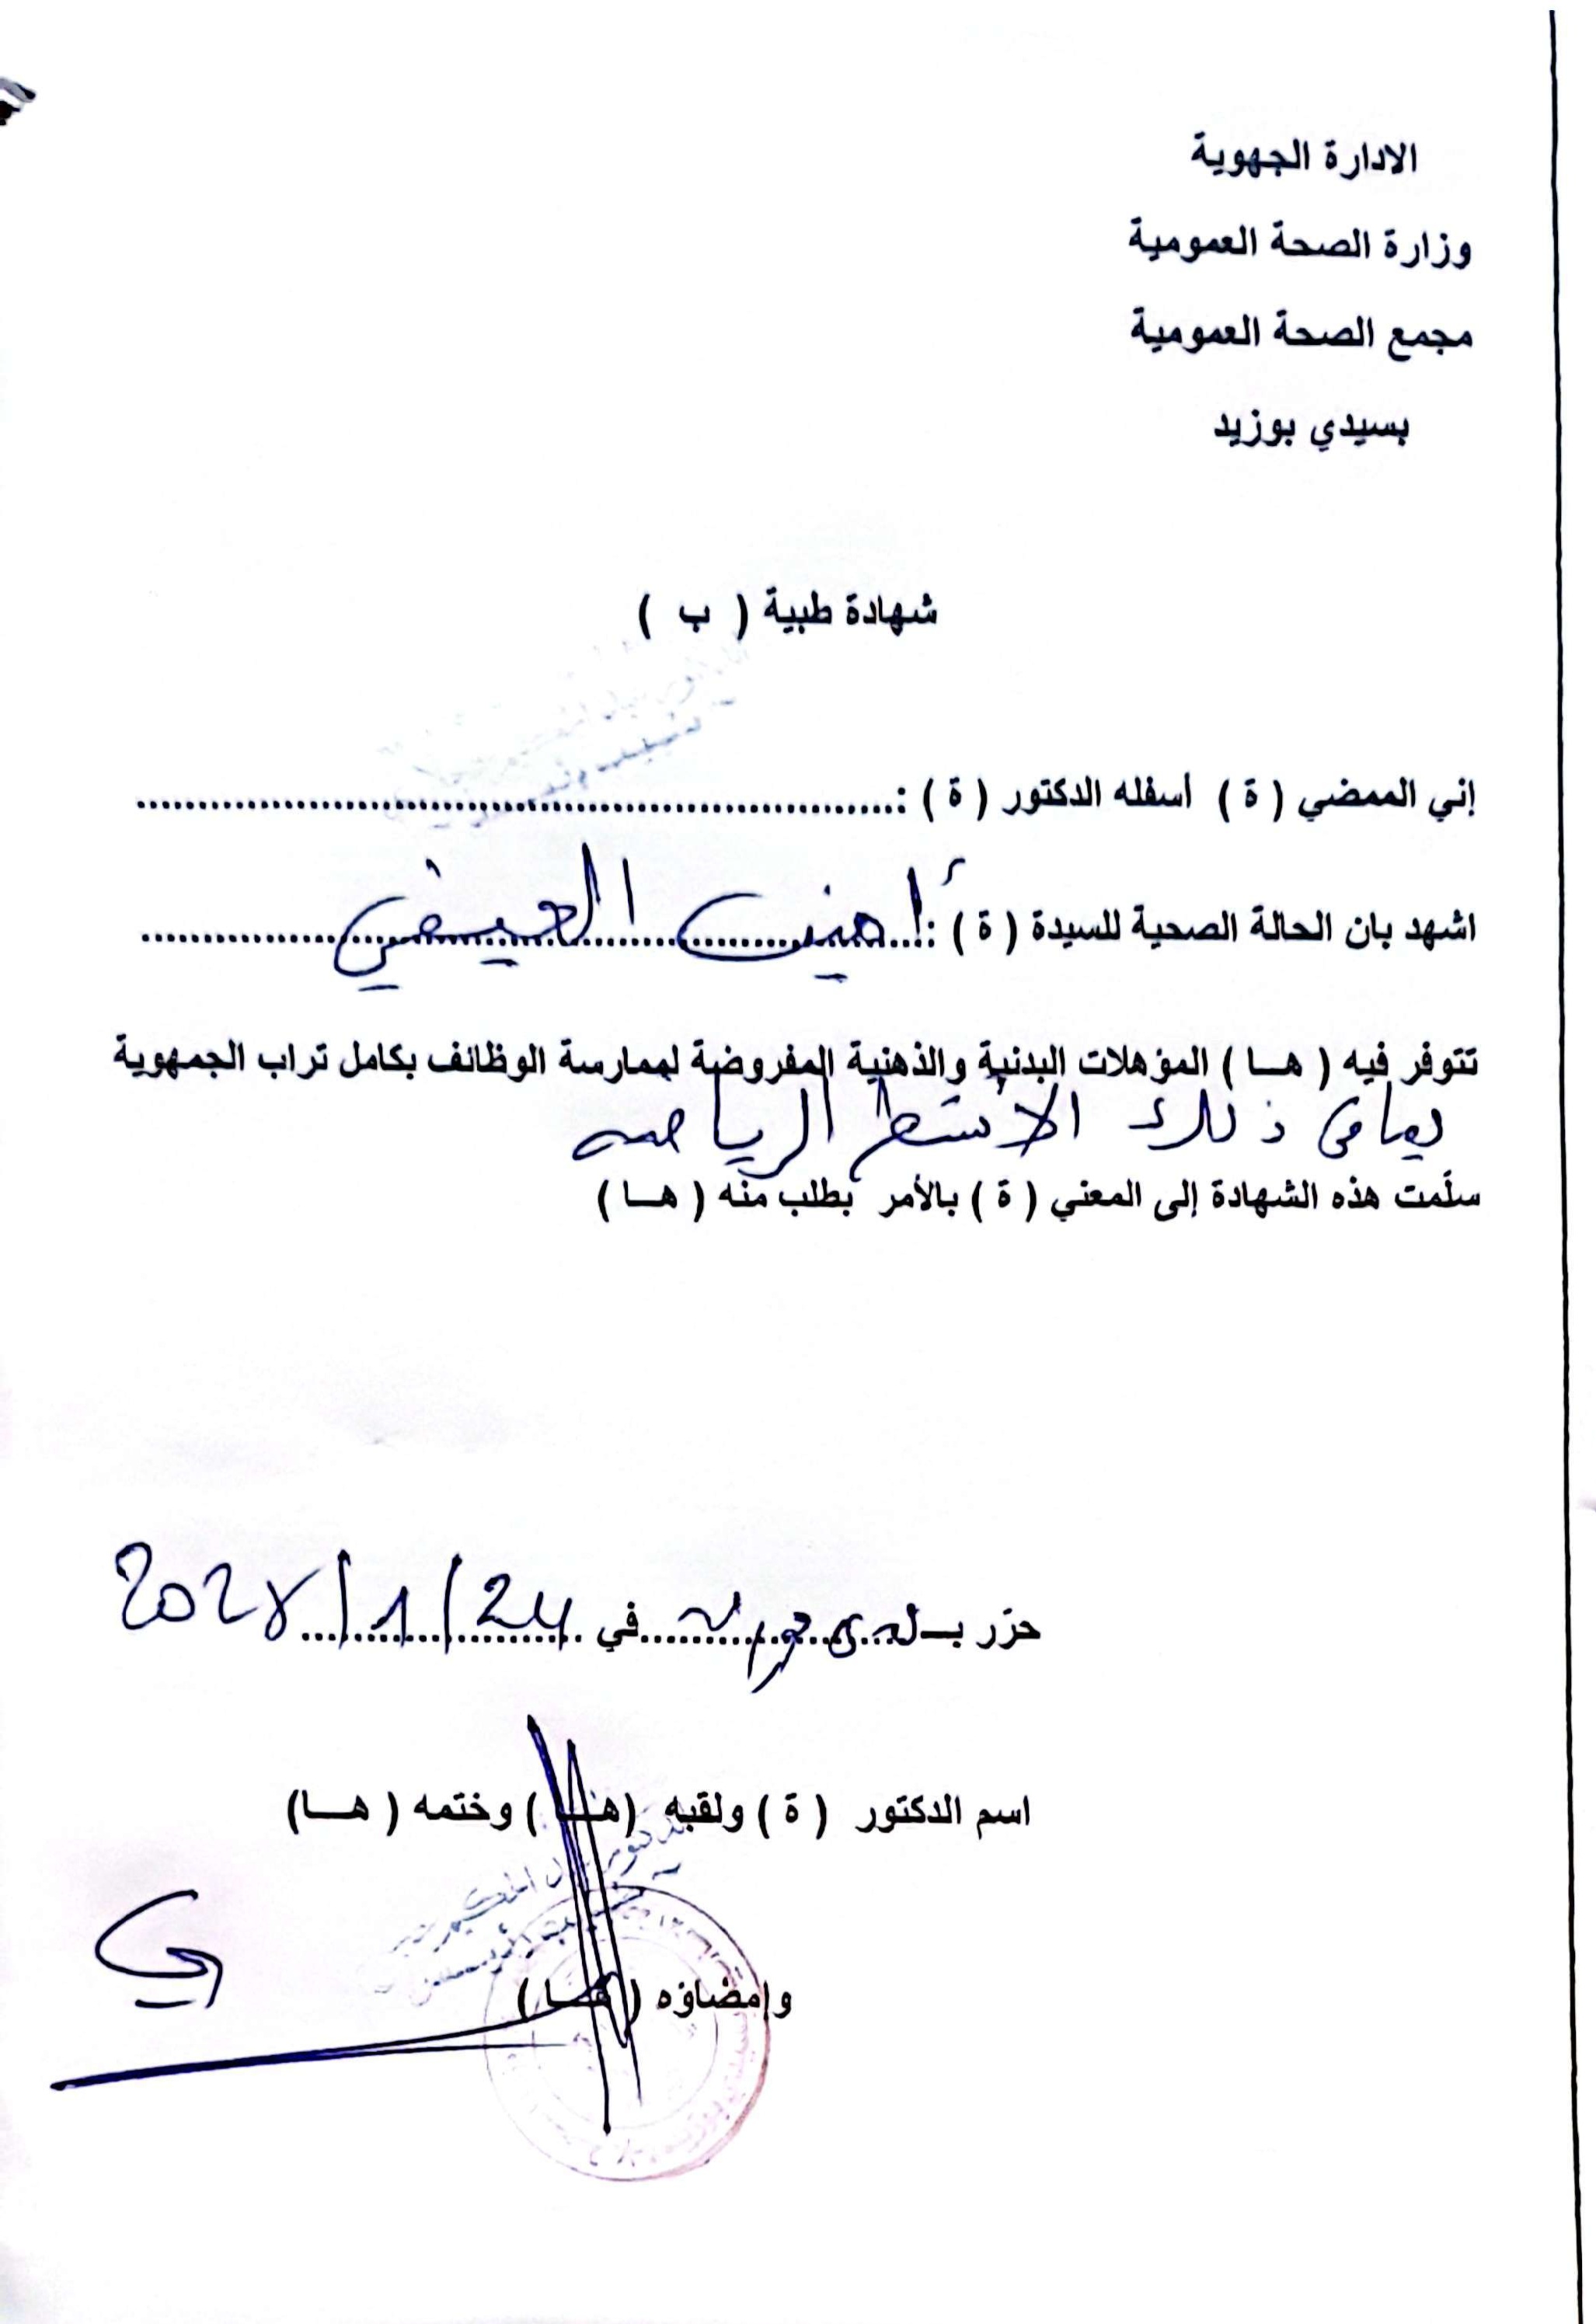 الادارة الجهوية
وزارة الصحة العمومية
مجمع الصحة العمومية
بسيدي بوزيد
شهادة طبية ( ب )
إني الممضي ( ة ) أسفله الدكتور ( ة ) :
اشهد بان الحالة الصحية للسيدة ( ة ) :
تتوفر فيه ( هـــا ) المؤهلات البدنية والذهنية المفروضة لممارسة الوظائف بكامل تراب الجمهوية
بما في ذلك الأنشطة الرياضية
سلّمت هذه الشهادة إلى المعني ( ة ) بالأمر بطلب منه ( هـــا )
حرّر بـ في 24/1/
اسم الدكتور ( ة ) ولقبه (هـــا ) وختمه ( هـــا)
وإمضاؤه ( هـــا )